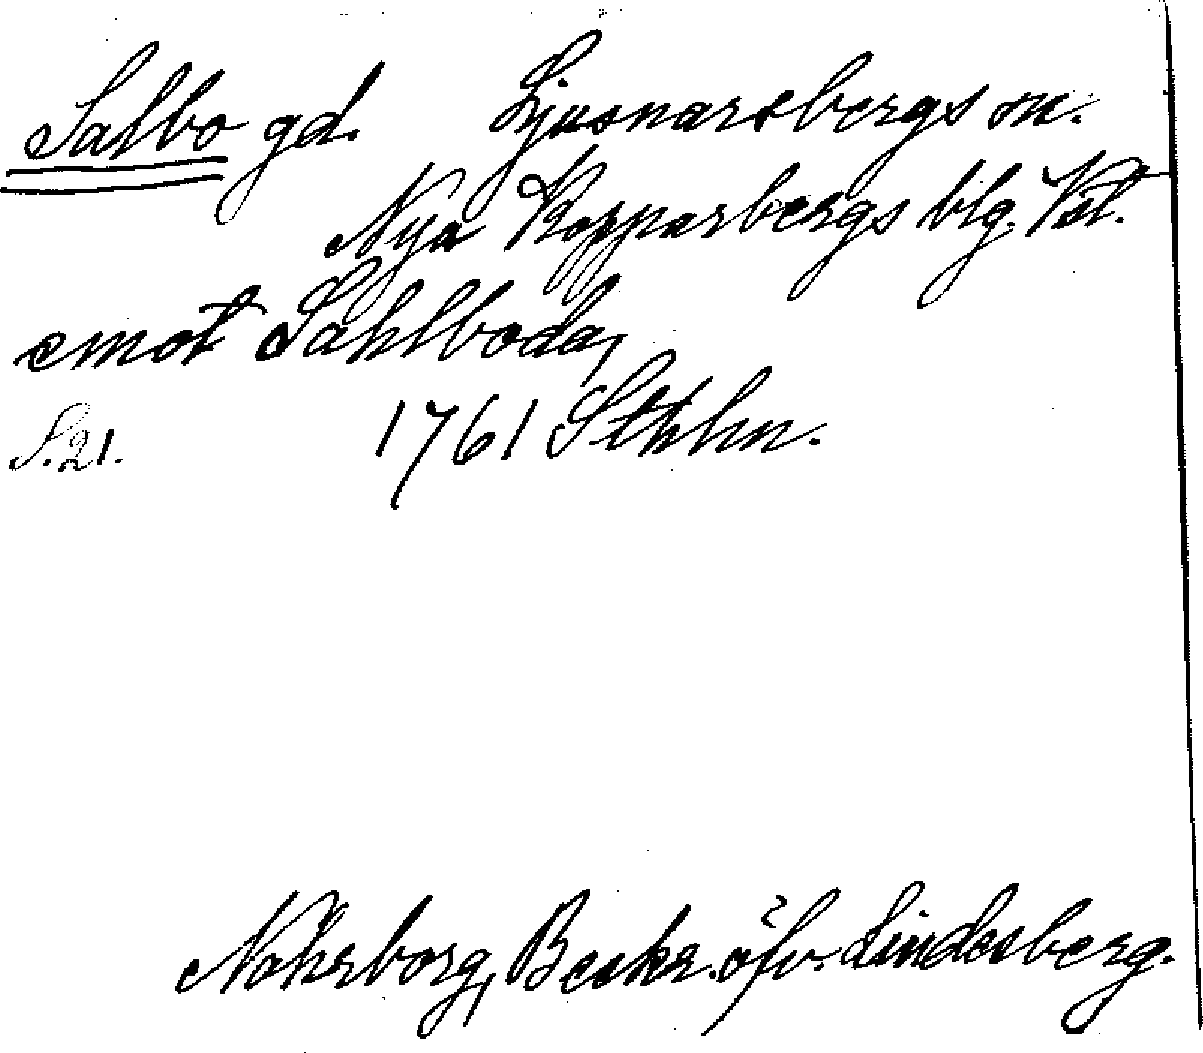 Salbo gd. Ljusnarsbergs sn.
Nya Kopparbergs blg. Vstl.
emot Sahlboda,
S. 21. 1761 Sthlm.
Nohrborg, Beskr. öfv. Lindesberg.